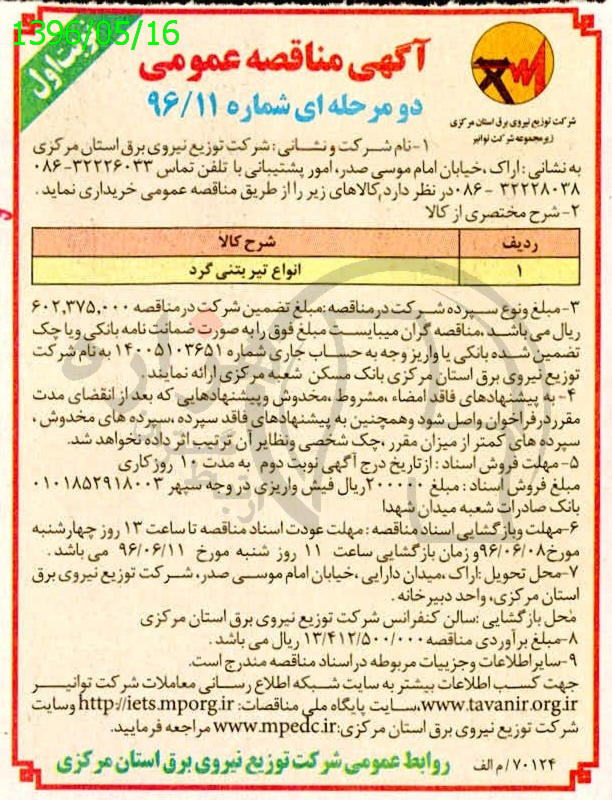 1396/05/16
نوبت اول
آگهی مناقصه عمومی
دو مرحله ای شماره ۹۶/۱۱
شرکت توزیع نیروی برق استان مرکزی
زیرمجموعه شرکت توانیر
۱-نام شرکت و نشانی : شرکت توزیع نیروی برق استان مرکزی
به نشانی : اراک ،خیابان امام موسی صدر، امور پشتیبانی با تلفن تماس ۳۲۲۲۶۰۳۳-۰۸۶
۳۲۲۲۸۰۳۸ -۰۸۶در نظر دارد کالاهای زیر را از طریق مناقصه عمومی خریداری نماید .
۲-شرح مختصری از کالا
ردیف شرح کالا
۱ انواع تیر بتنی گرد
۳-مبلغ ونوع سپرده شرکت در مناقصه :مبلغ تضمین شرکت در مناقصه ۶۰۲,۳۷۵,۰۰۰
ریال می باشد ،مناقصه گران میبایست مبلغ فوق را به صورت ضمانت نامه بانکی ویا چک
تضمین شده بانکی یا واریز وجه به حساب جاری شماره ۱۴۰۰۵۱۰۳۶۵۱ به نام شرکت
توزیع نیروی برق استان مرکزی بانک مسکن شعبه مرکزی ارائه نمایند .
۴- به پیشنهادهای فاقد امضاء ،مشروط ،مخدوش وپیشنهادهایی که بعد از انقضای مدت
مقرردرفراخوان واصل شود وهمچنین به پیشنهادهای فاقد سپرده ،سپرده های مخدوش ،
سپرده های کمتر از میزان مقرر ،چک شخصی ونظایر آن ترتیب اثر داده نخواهد شد.
۵- مهلت فروش اسناد : ازتاریخ درج آگهی نوبت دوم به مدت ۱۰ روز کاری
مبلغ فروش اسناد : مبلغ ۲۰۰۰۰۰ریال فیش واریزی در وجه سپهر ۰۱۰۱۸۵۲۹۱۸۰۰۳
بانک صادرات شعبه میدان شهدا
۶-مهلت وبازگشایی اسناد مناقصه : مهلت عودت اسناد مناقصه تا ساعت ۱۳ روز چهارشنبه
مورخ۹۶/۰۶/۰۸ و زمان بازگشایی ساعت ۱۱ روز شنبه مورخ ۹۶/۰۶/۱۱ می باشد .
۷-محل تحویل :اراک ،میدان دارایی ،خیابان امام موسی صدر، شرکت توزیع نیروی برق
استان مرکزی، واحد دبیرخانه .
محل بازگشایی :سالن کنفرانس شرکت توزیع نیروی برق استان مرکزی
۸-مبلغ برآوردی مناقصه ۱۳/۴۱۲/۵۰۰/۰۰۰ ریال می باشد .
۹-سایراطلاعات وجزییات مربوطه دراسناد مناقصه مندرج است.
جهت کسب اطلاعات بیشتر به سایت شبکه اطلاع رسانی معاملات شرکت توانیر
www.tavanir.org.ir،سایت پایگاه ملی مناقصات: http://iets.mporg.ir وسایت
شرکت توزیع نیروی برق استان مرکزی:www.mpedc.ir مراجعه فرمایید.
۷۰۱۲۴/م الف روابط عمومی شرکت توزیع نیروی برق استان مرکزی